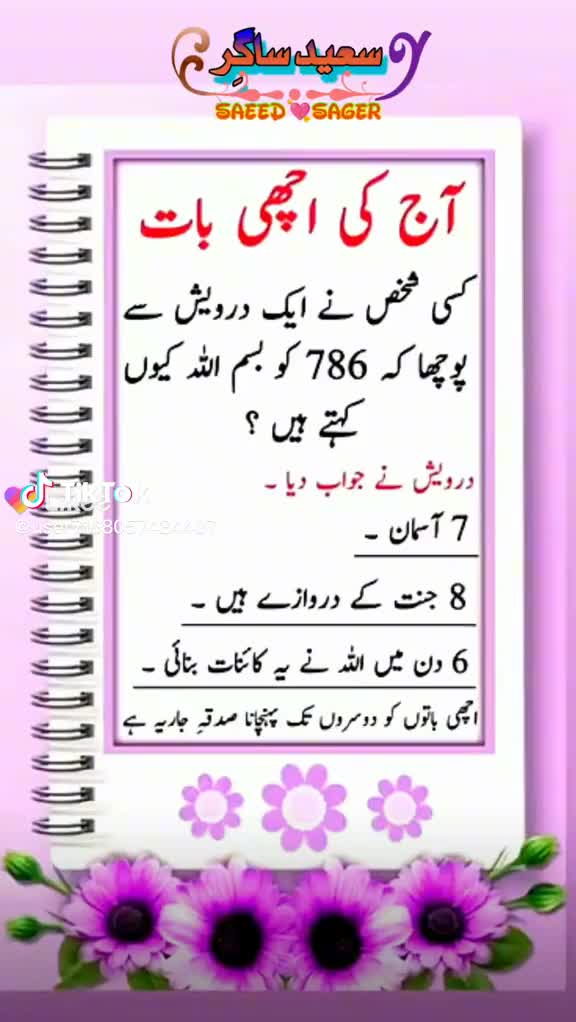 سعید ساگر
SAEED SAGER
آج کی اچھی بات
کسی شخص نے ایک درویش سے
پوچھا کہ 786 کو بسم اللہ کیوں
کہتے ہیں ؟
درویش نے جواب دیا ۔
7 آسمان ۔
8 جنت کے دروازے ہیں ۔
6 دن میں اللہ نے یہ کائنات بنائی ۔
اچھی باتوں کو دوسروں تک پہنچانا صدقہِ جاریہ ہے
TikTok